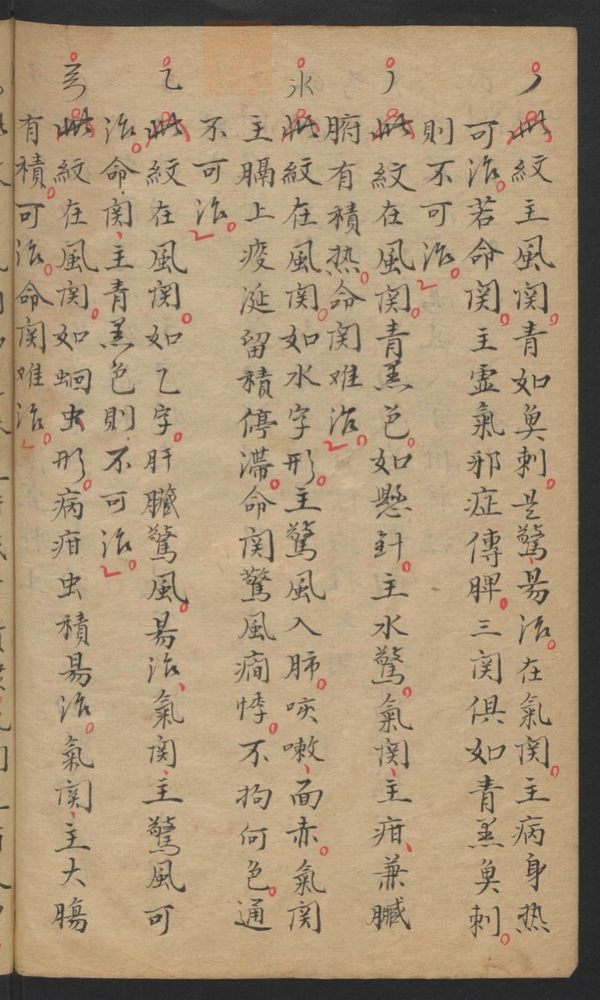 丿此紋主風関。青如奐刺。是驚、昜治。在氣関。主病身热
可治。若命関。主虚氣邪症傳脾。三関俱如青黒奐刺。
則不可治。
丿此紋在風関。青黒色。如懸針。主水驚。氣関、主疳、兼臟
腑有積热。命関难治。
水此紋在風関。如水字形。主驚風入肺。咳嗽、面赤。氣関
主膈上痰涎留積停滞。命関驚風癎悸。不拘何色。通
不可治。
乙此紋在風関。如乙字。肝臟驚風。昜治、氣関、主驚風可
治。命関、主青黒色則不可治。
此紋在風関。如蛔虫形。病疳虫積昜治。氣関、主大腸
有積。可治。命関难治。